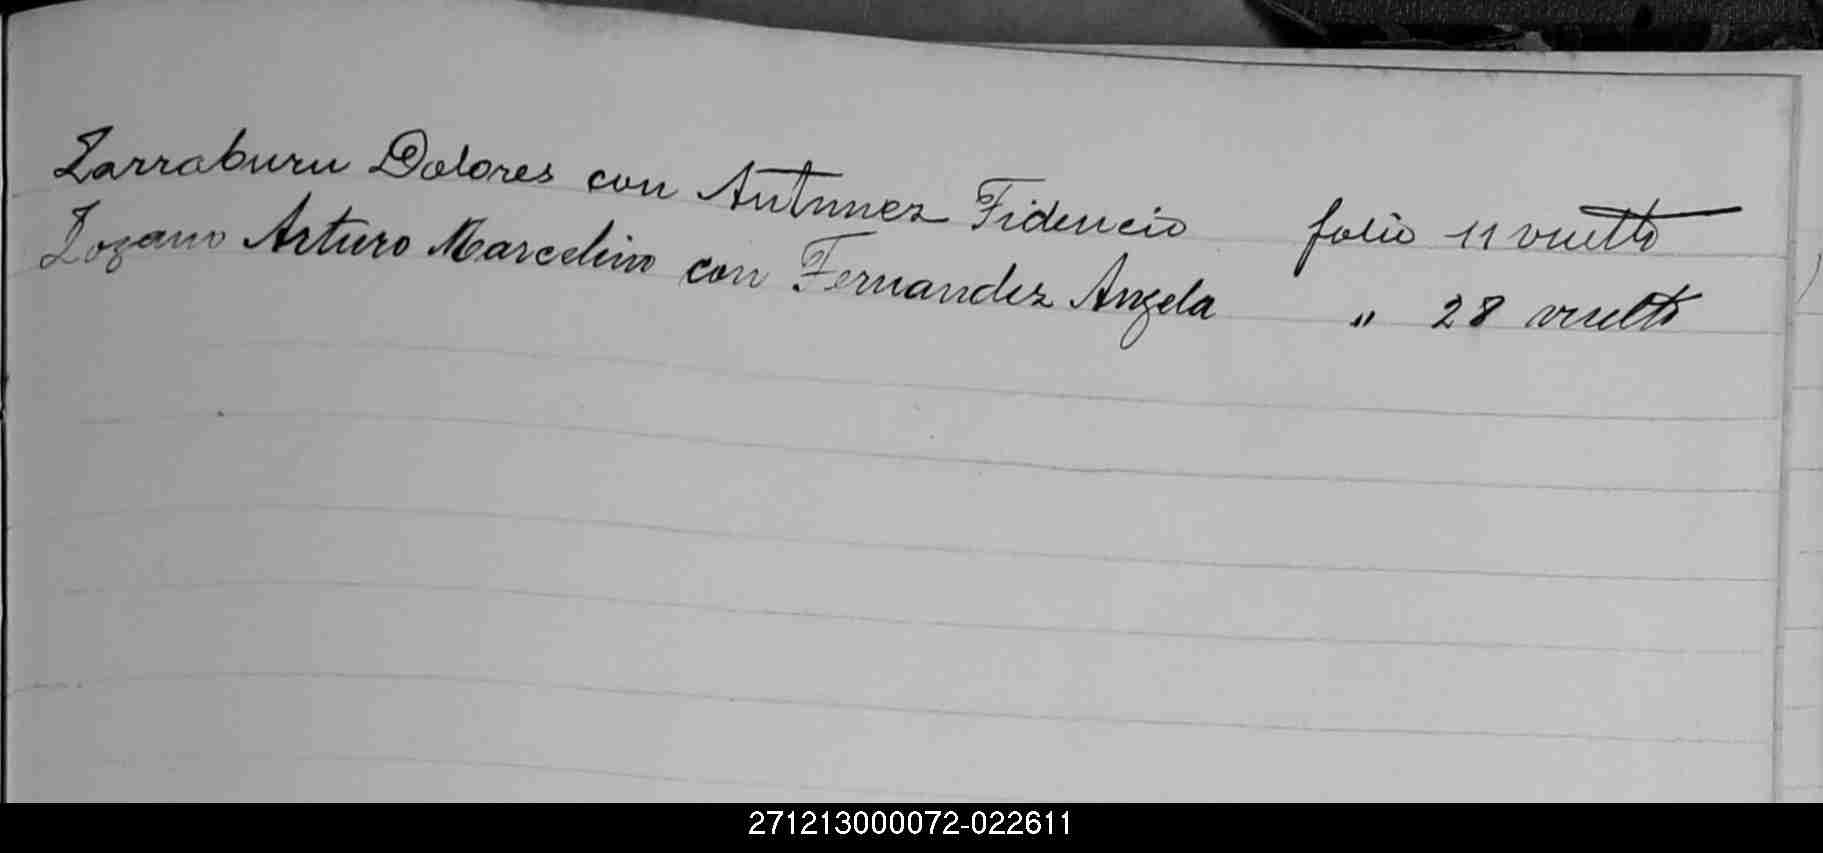 Larraburu Dolores con Antunez Fidencio folio 11 vuelto
Lozano Arturo Marcelino con Fernandez Angela " 28 vuelto
271213000072-022611